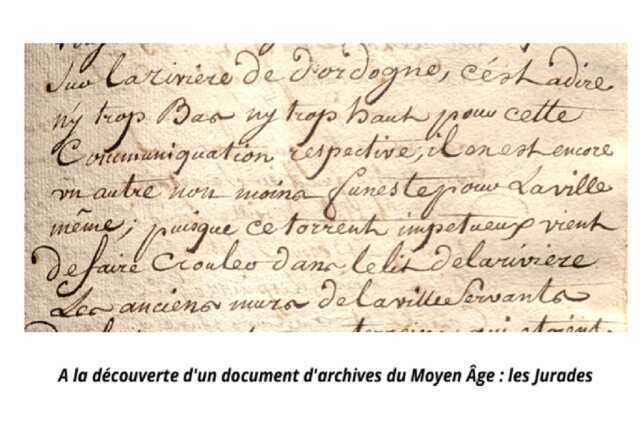 Sur la riviere de Dordogne, c'est adire
n'y trop Bas ny trop haut pour cette
Communiquation respective, il en est encore
un autre non moins funeste pour La ville
même; puisque ce torrent impetueux vient
de faire Crouler dans le lit de la riviere
Les anciens murs de la ville Servants
A la découverte d'un document d'archives du Moyen Âge : les Jurades